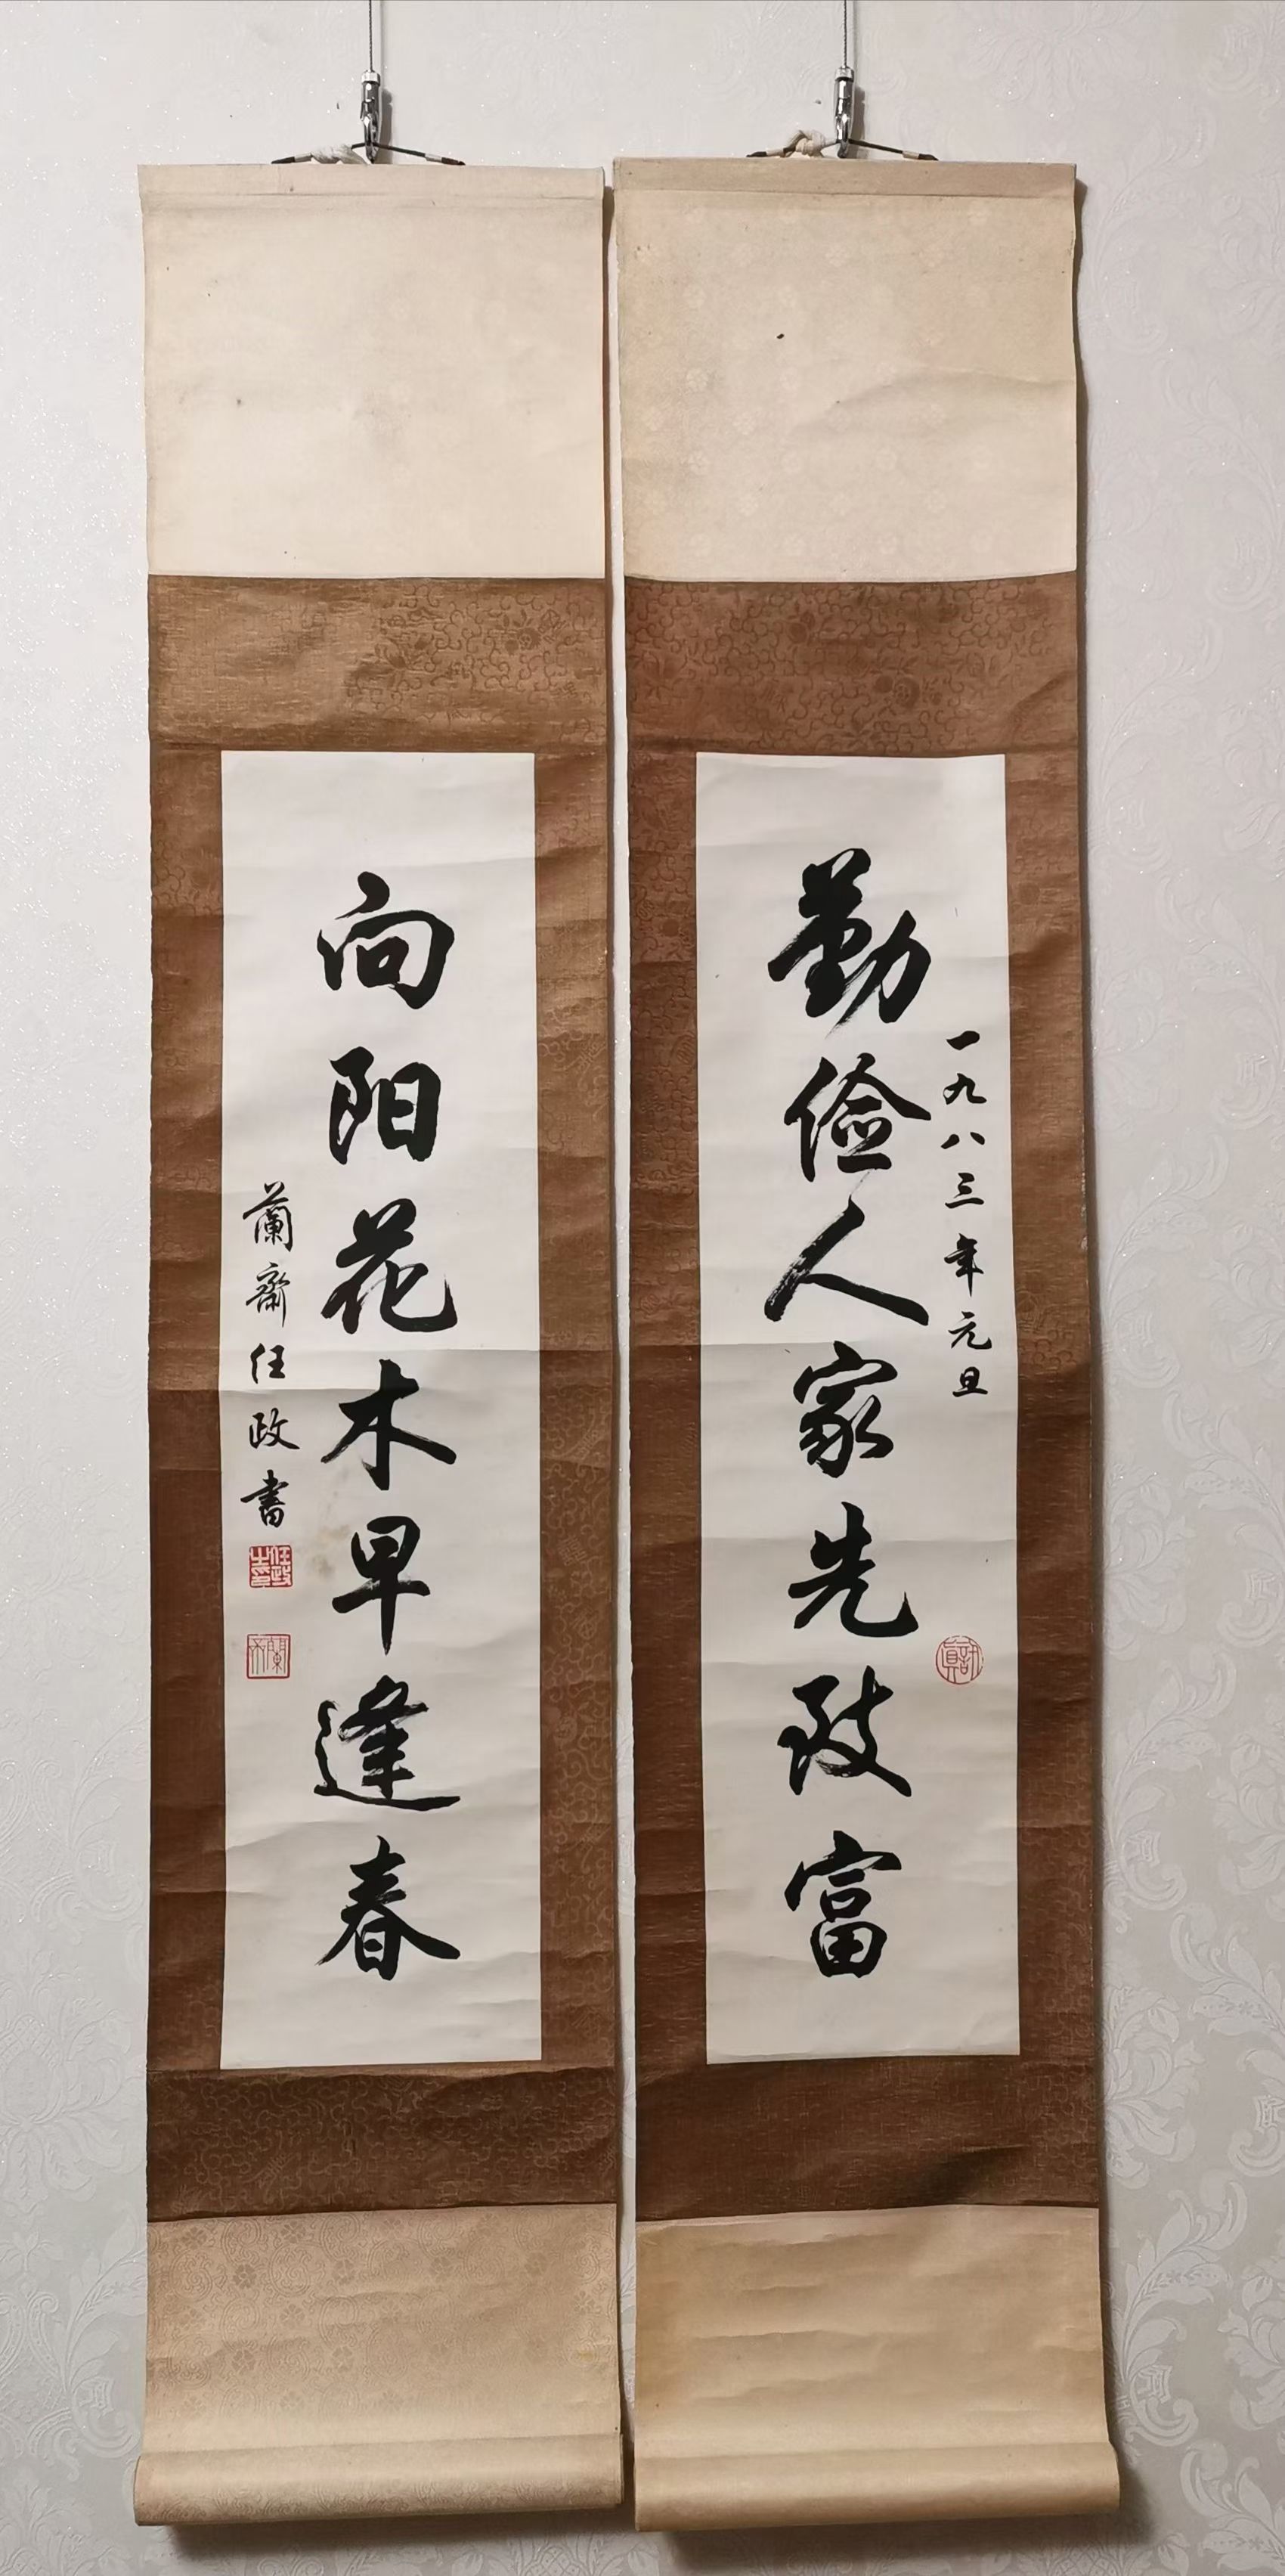 勤俭人家先致富
一九八三年元旦
向阳花木早逢春
蘭齋任政書
任政之印